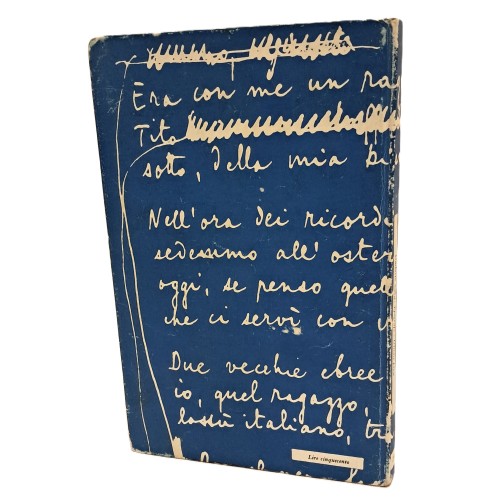 Era con me un ra
Tito
sotto, della mia bi
Nell'ora dei ricordi
sedessimo all'oster
oggi, se penso quell
che ci servì con
Due vecchie ebree
io, quel ragazzo,
lassù italiano, tr
Lire cinquecento